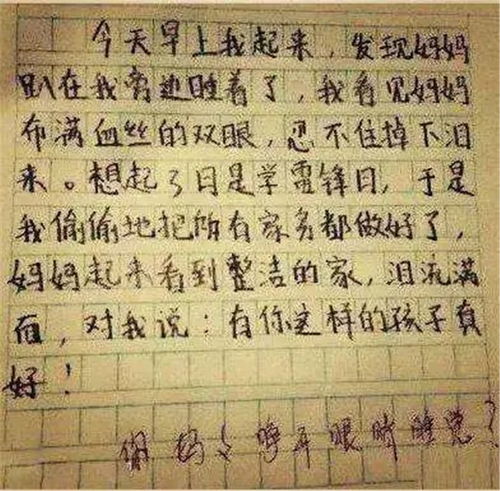 今天早上我起来，发现妈妈
趴在我旁边睡着了，我看见妈妈
布满血丝的双眼，忍不住掉下泪
来。想起了今日是学雷锋日，于是
我偷偷地把所有家务都做好了，
妈妈起来看到整洁的家，泪流满
面，对我说：有你这样的孩子真
好！
你妈妈睁开眼睛睡觉？